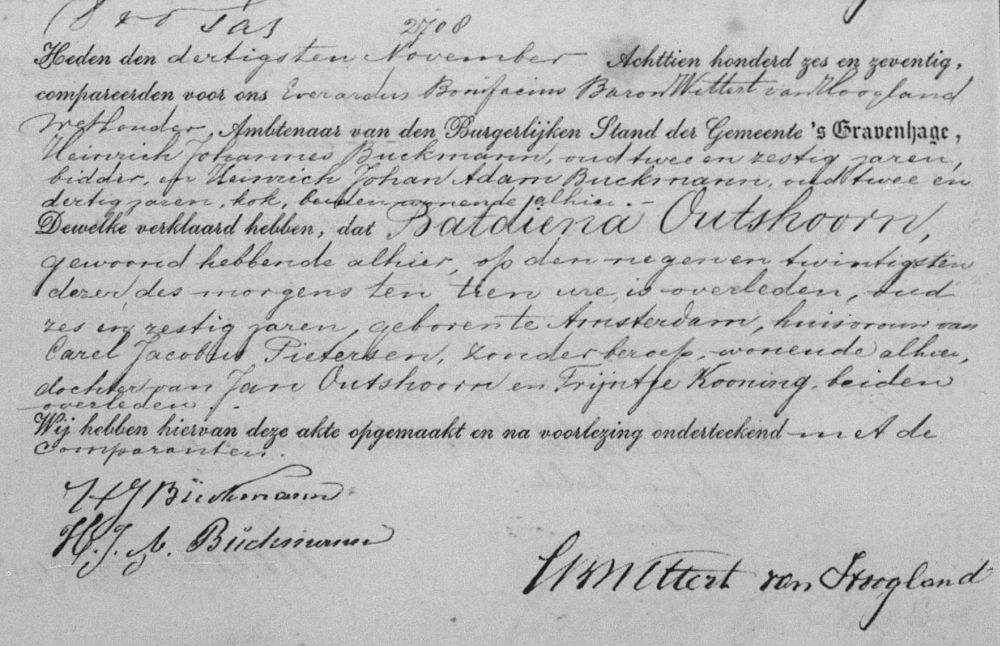 2708
Heden den dertigsten November Achttien honderd zes en zeventig,
compareerden voor ons Everardus Bonifacius Baron Wittert van Hoogland
wethouder, Ambtenaar van den Burgerlijken Stand der Gemeente 's Gravenhage,
Heinrich Johannes Buckmann, oud twee en zestig jaren,
bidder, en Heinrich Johan Adam Buckmann, oud twee en
dertig jaren, kok, beiden wonende alhier.–
Dewelke verklaard hebben, dat Batdiena Outshoorn,
gewoond hebbende alhier, op den negenen twintigsten
dezer des morgens ten tien ure, is overleden, oud
zes en zestig jaren, geboren te Amsterdam, huisvrouw van
Carel Jacobus Pietersen, zonder beroep, wonende alhier,
dochter van Jan Outshoorn en Trijntje Kooning, beiden
overleden.
Wij hebben hiervan deze akte opgemaakt en na voorlezing onderteekend met de
Comparanten.
H J Bückmann
H. J. A. Bückmann
Wittert van Hoogland